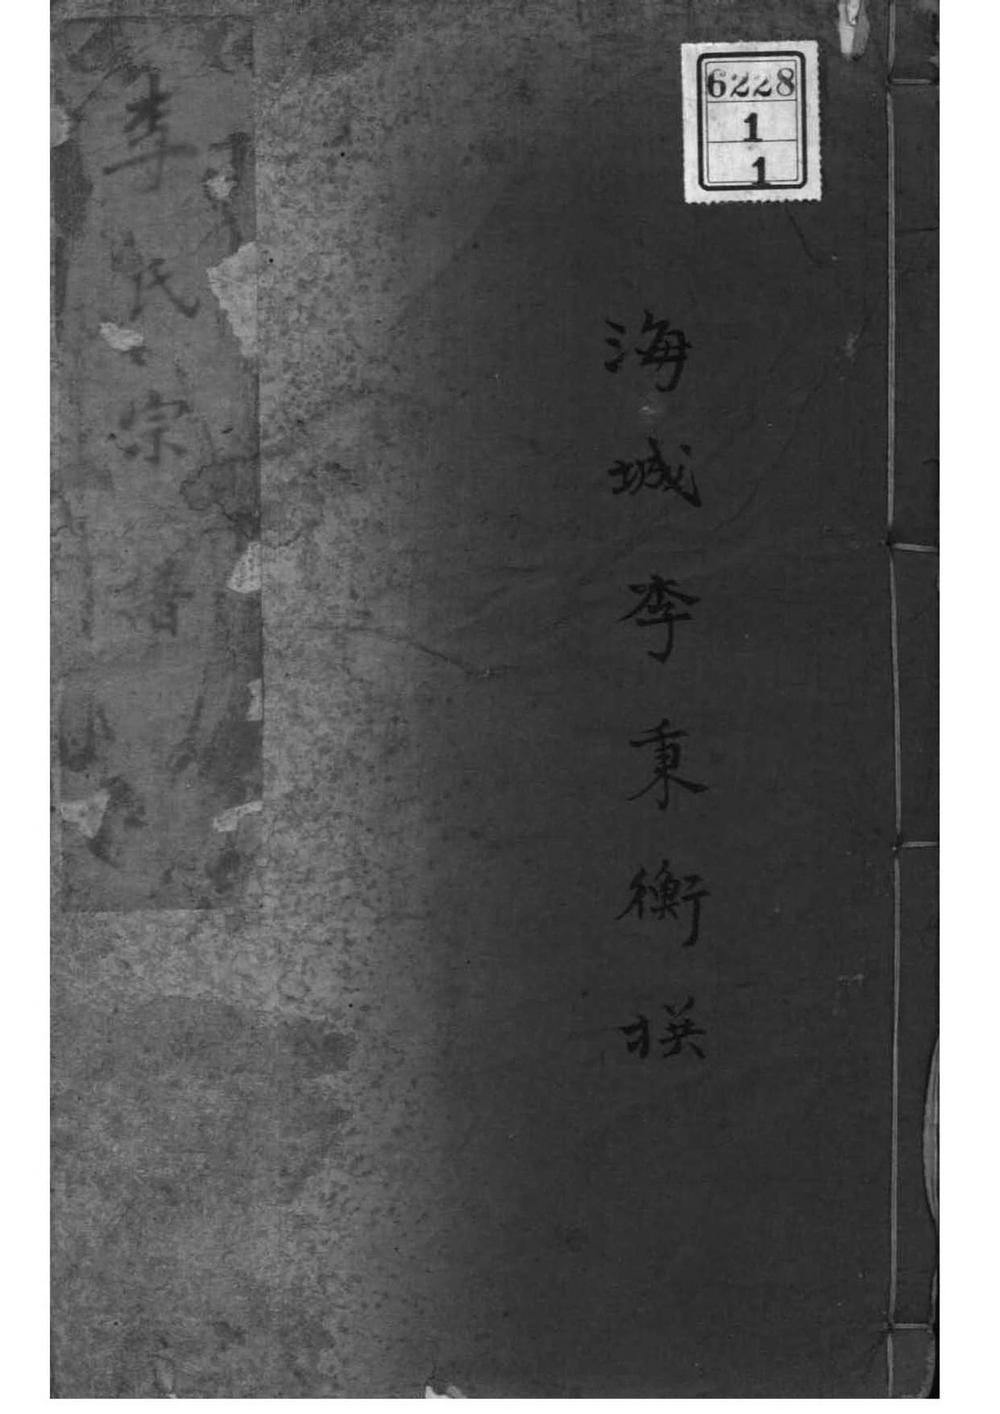 6228
1
1
海城李秉衡撰
李氏宗譜